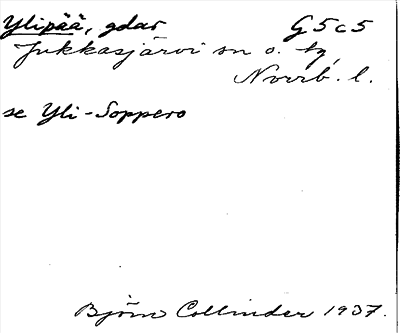 Ylipää, gdar G5c5
Jukkasjärvi sn o. tg,
Norrb. l.
se Yli-Soppero
Björn Collinder 1937.